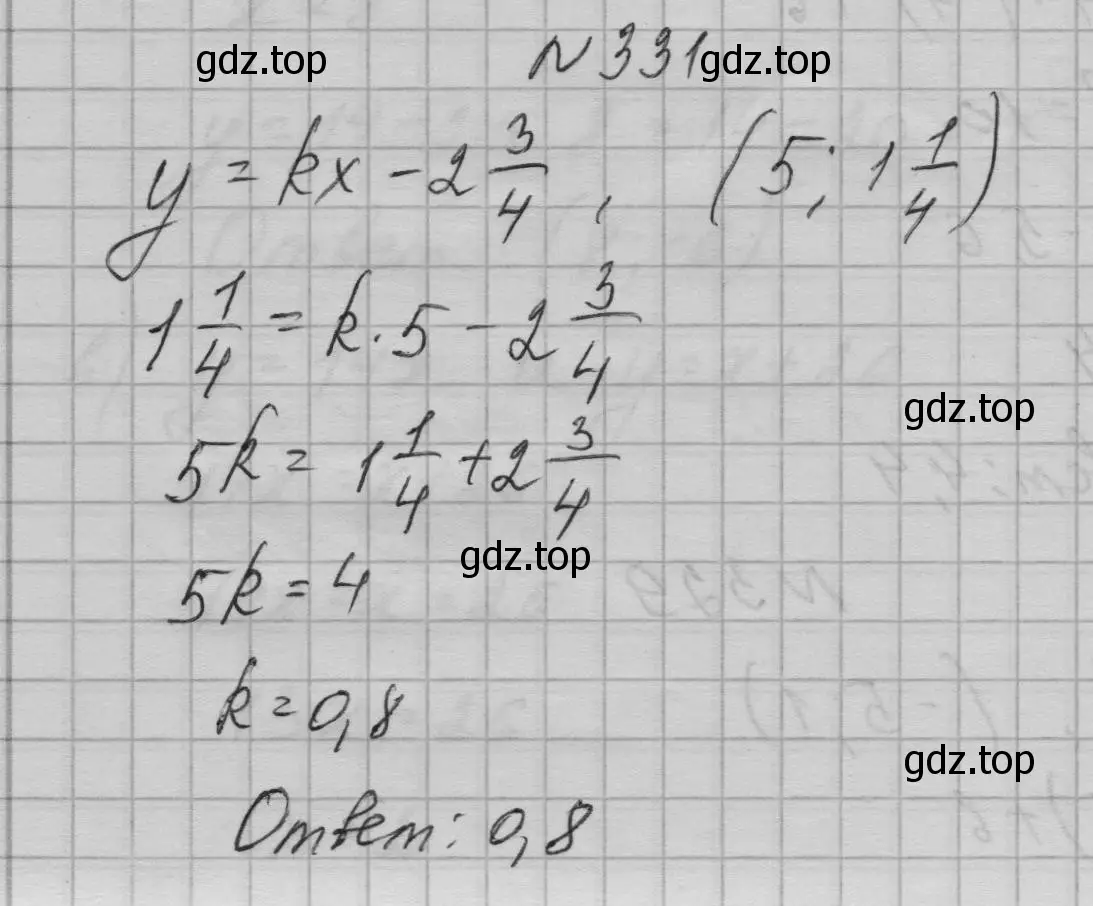 gdz.top N 331 gdz.top
y = kx - 2 3/4, (5; 1 1/4)
1 1/4 = k · 5 - 2 3/4
gdz.top
5k = 1 1/4 + 2 3/4
gdz.top
5k = 4
k = 0,8
gdz.top
Ответ: 0,8